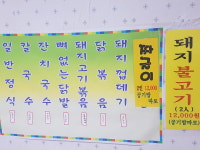 일반정식
칼국수
잔치국수
뼈없는닭발
돼지고기볶음
돼지껍데기
짜글이
2인 12,000
공기밥
따로
돼지불고기
(2人)
12,000원
(공기밥따로)